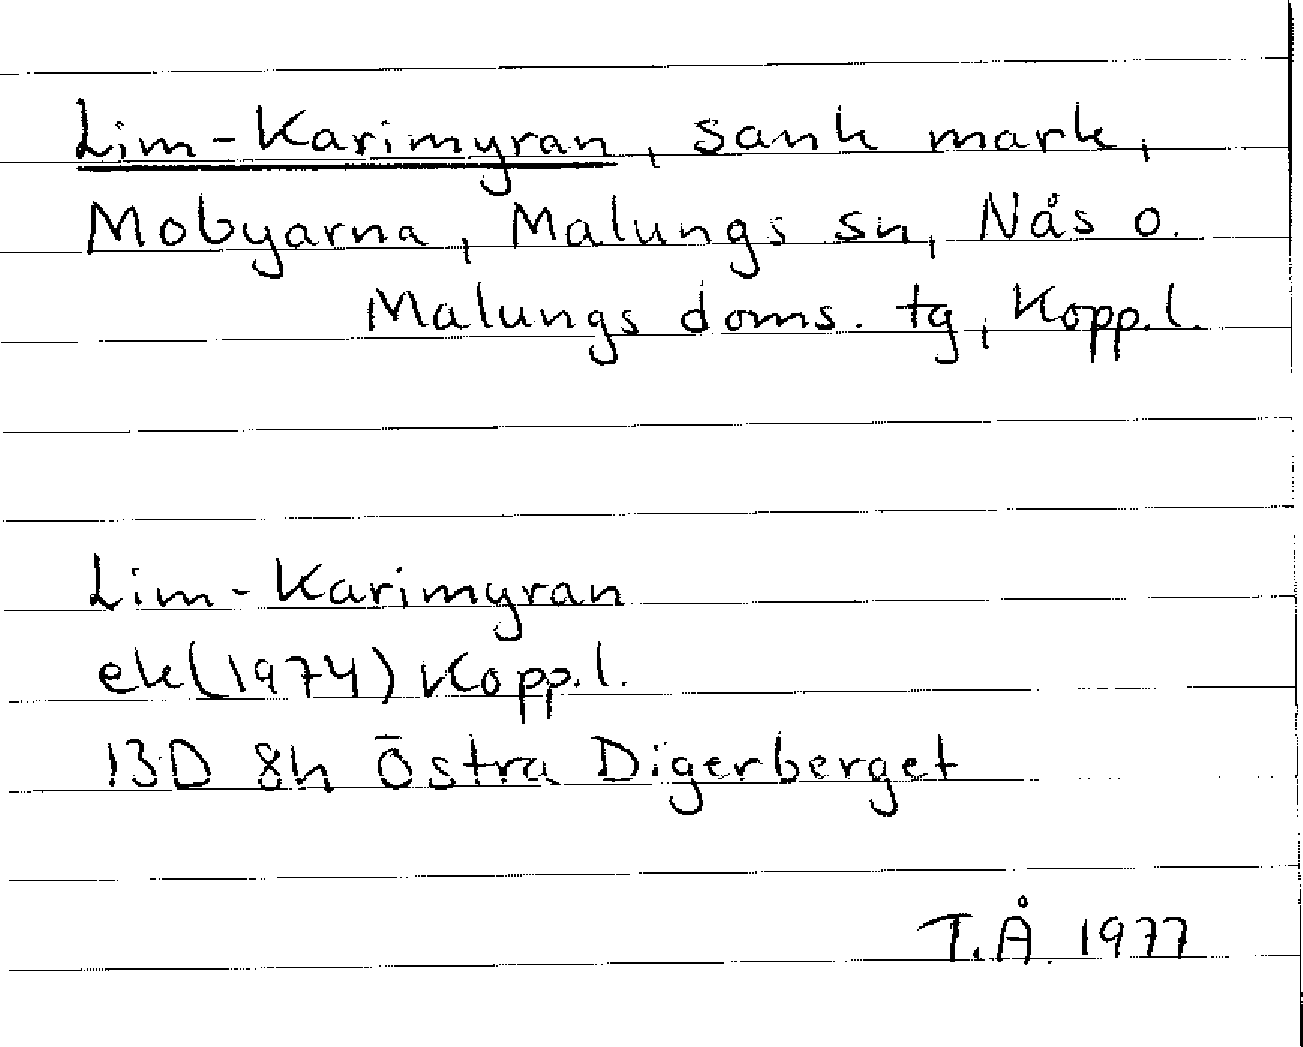 Lim-Karimyran, sank mark,
Mobyarna, Malungs sn, Nås o.
Malungs doms. tg, Kopp.l.
Lim-Karimyran
ek(1974) Kopp.l.
13D 8h Östra Digerberget
T.Å. 1977